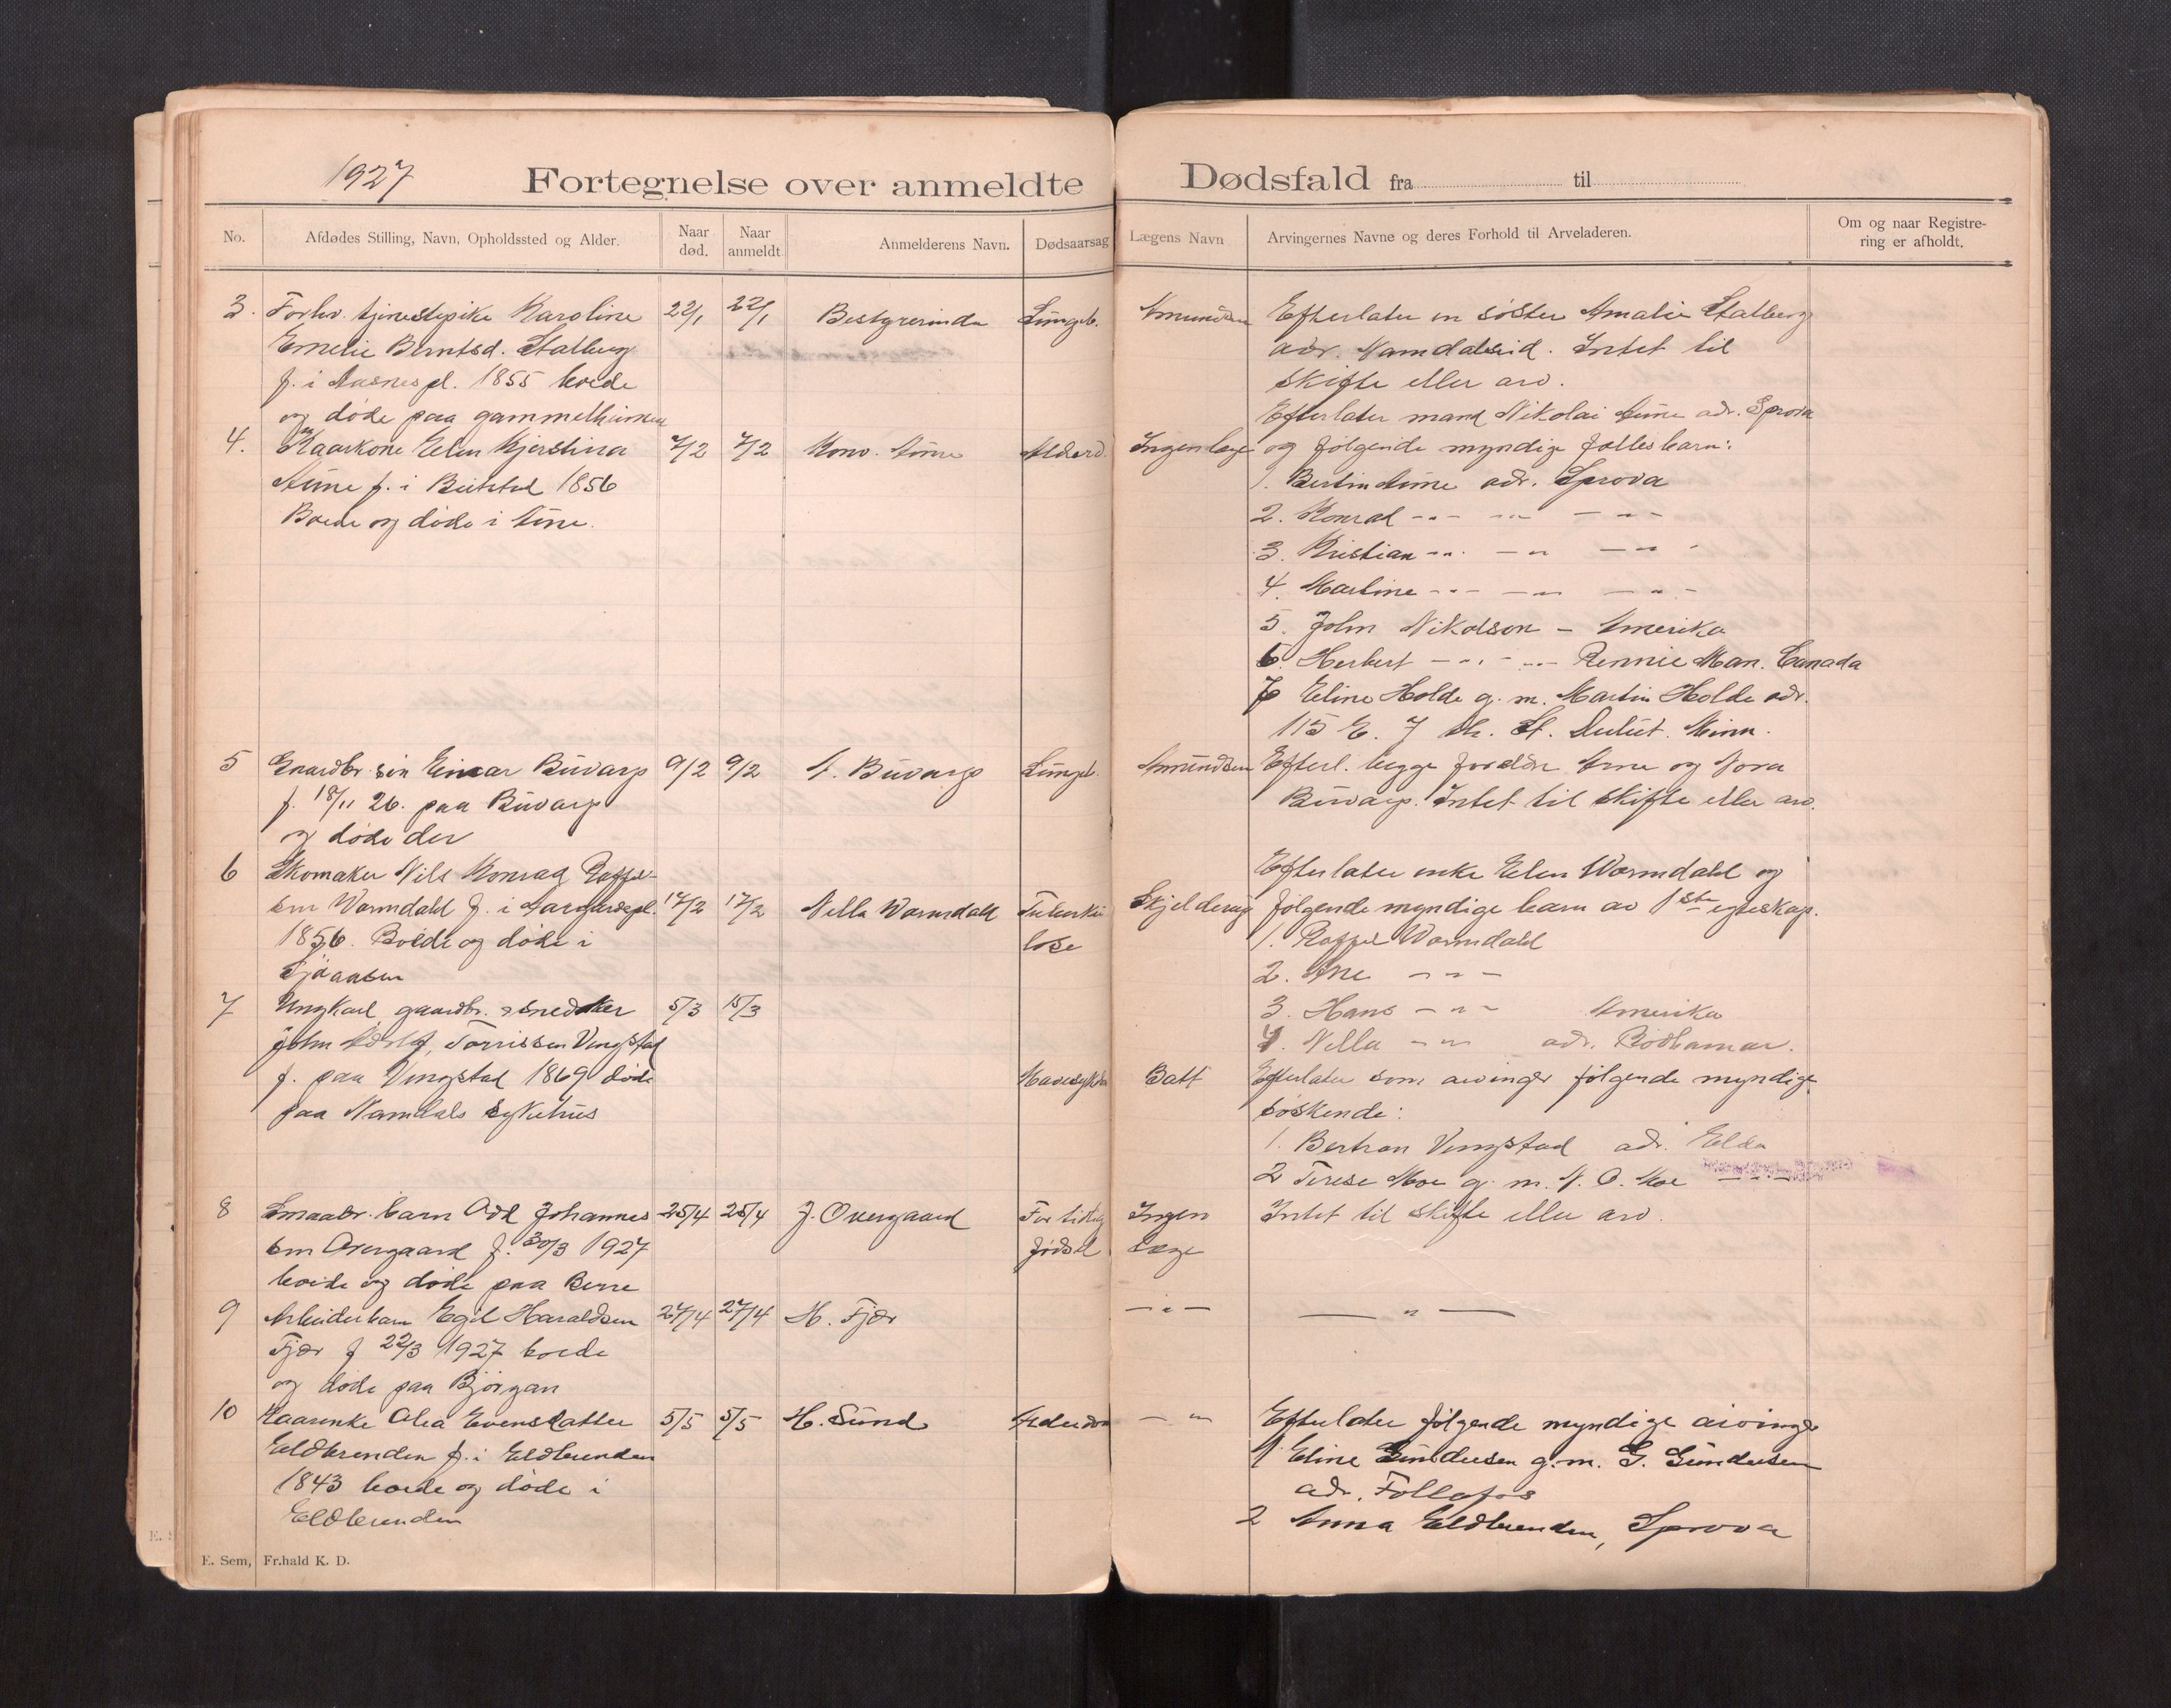 1927
Fortegnelse over anmeldte Dødsfald fra til
No. Afdødes Stilling, Navn, Opholdssted og Alder. Naar død. Naar anmeldt Anmelderens Navn. Dødsaarsag Lægens Navn Arvingernes Navne og deres Forhold til Arveladeren. Om og naar Registrering er afholdt.
3. Forhv. tjenestepike Karoline 22/1 22/1 Bestyrerinde Lungeb. Amundsen Efterlater en søster Amalie Stalberg
Emelie Berntsd. Stalberg adr. Namdalseid. Intet til
f. i Aasnespl. 1855 boede skifte eller arv.
og døde paa gammelhjemmet
Efterlater mand Nikolai Aune adr. Sprova
4. Kaarkone Elen Kjerstina 7/2 7/2 Konr. Aune Alderd. Ingen læge og følgende myndige fællesbarn:
Aune f. i Beitstad 1856 1. Bertin Aune adr. Sprova
Boede og døde i Aune. 2. Konrad -"- -"- -"-
3. Kristian -"- -"- -"-
4. Martine -"- -"- -"-
5. John Nikolson - Amerika
6. Herbert -"- -"- Rennie Man. Canada
7 Eline Holde g. m. Martin Holde adr.
115 E. 7 th. St. Dulut. Minn.
5 Gaardbr. søn Einar Buvarp 9/2 9/2 A. Buvarp Lungeb. Amundsen Efterl. begge foreldre Arne og Nora
f. 18/11 26. paa Buvarp Buvarp. Intet til skifte eller arv.
og døde der
6 Skomaker Nils Konrad Raffel- Efterlater enke Elen Warmdahl og
sen Warmdahl f. i 17/2 17/2 Nella Warmdahl Tuberku Skjelderup følgende myndige barn av 1ste egteskap.
1856. Boede og døde i lose 1. Raffel Warmdahl
2. Ane -"-
3. Hans -"- Amerika
7 Ungkarl, gaardbr. snedker 5/3 15/3
4. Nella -"- adr. Rødhamar.
John Adolf Torrissen Vengstad
f. paa Vengstad 1869 døde Mavesykdom Batt Efterlater som arvinger følgende myndige
paa Namdals sykehus søskende:
1. Bertran Vengstad adr. Elda
2 Terese Moe g. m. N. O. Moe -"-
8 Smaabr. barn Odd Johannes 25/4 25/4 J. Overgaard For tidlig Ingen Intet til skifte eller arv.
sen Overgaard f. 30/3 1927 fødsel Læge
boede og døde paa Berre
9 Arbeiderbarn Egil Haraldsen 27/4 27/4 H. Fjær -"- -"-
Fjær f 22/3 1927 boede
og døde paa Bjørgan
10 Kaarenke Olea Evensdatter 5/5 5/5 H. Sund Alderdom -"- Efterlater følgende myndige arvinger
Eldbrenden f. i Eldbrenden 1 Eline Gundersen g. m. G. Gundersen
1843 boede og døde i adr. Follafos
Eldbrenden 2 Anna Eldbrenden, Sprova
E. Sem, Fr.hald K. D.